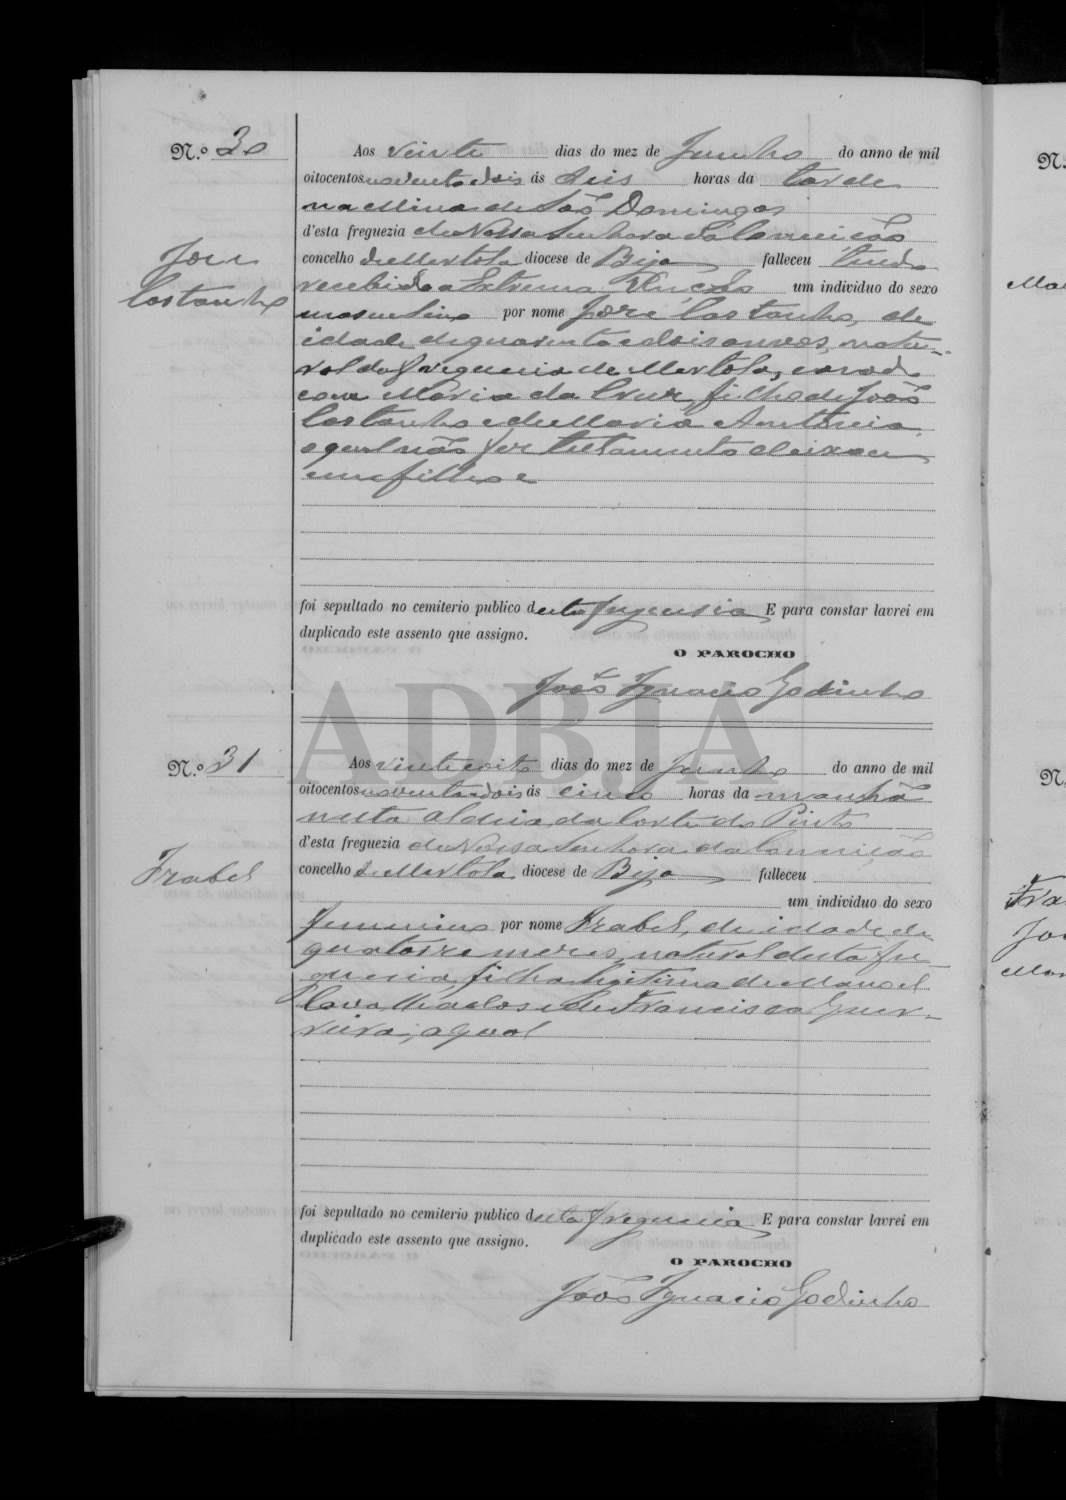 N.º 30
Aos vinte dias do mez de Junho do anno de mil
oitocentos noventa e dois ás seis horas da tarde
na Mina de São Domingos
d'esta freguezia de Nossa Senhora da Conceição
concelho de Mertola diocese de Beja falleceu tendo
recebido a Extrema Unção um individuo do sexo
masculino por nome José Castanho, de
idade de quarenta e dois annos, natu-
ral da freguezia de Mertola, casado
com Maria da Cruz, filho de João
Castanho e de Maria Antonia,
o qual não fez testamento deixou
um filho e
José
Castanho
foi sepultado no cemiterio publico desta freguezia E para constar lavrei em
duplicado este assento que assigno.
O PAROCHO
João Ignacio Godinho
ADBJA
N.º 31
Aos vinte e oito dias do mez de Junho do anno de mil
oitocentos noventa e dois ás cinco horas da manhã
nesta Aldeia da Corte do Pinto
d'esta freguezia de Nossa Senhora da Conceição
concelho de Mertola diocese de Beja falleceu
um individuo do sexo
femenino por nome Izabel, de idade de
quatorze mezes, natural desta fre-
guezia, filha legitima de Manoel
e de Francisca Guer-
reira, a qual
Izabel
foi sepultado no cemiterio publico desta freguezia E para constar lavrei em
duplicado este assento que assigno.
O PAROCHO
João Ignacio Godinho
N.
N.